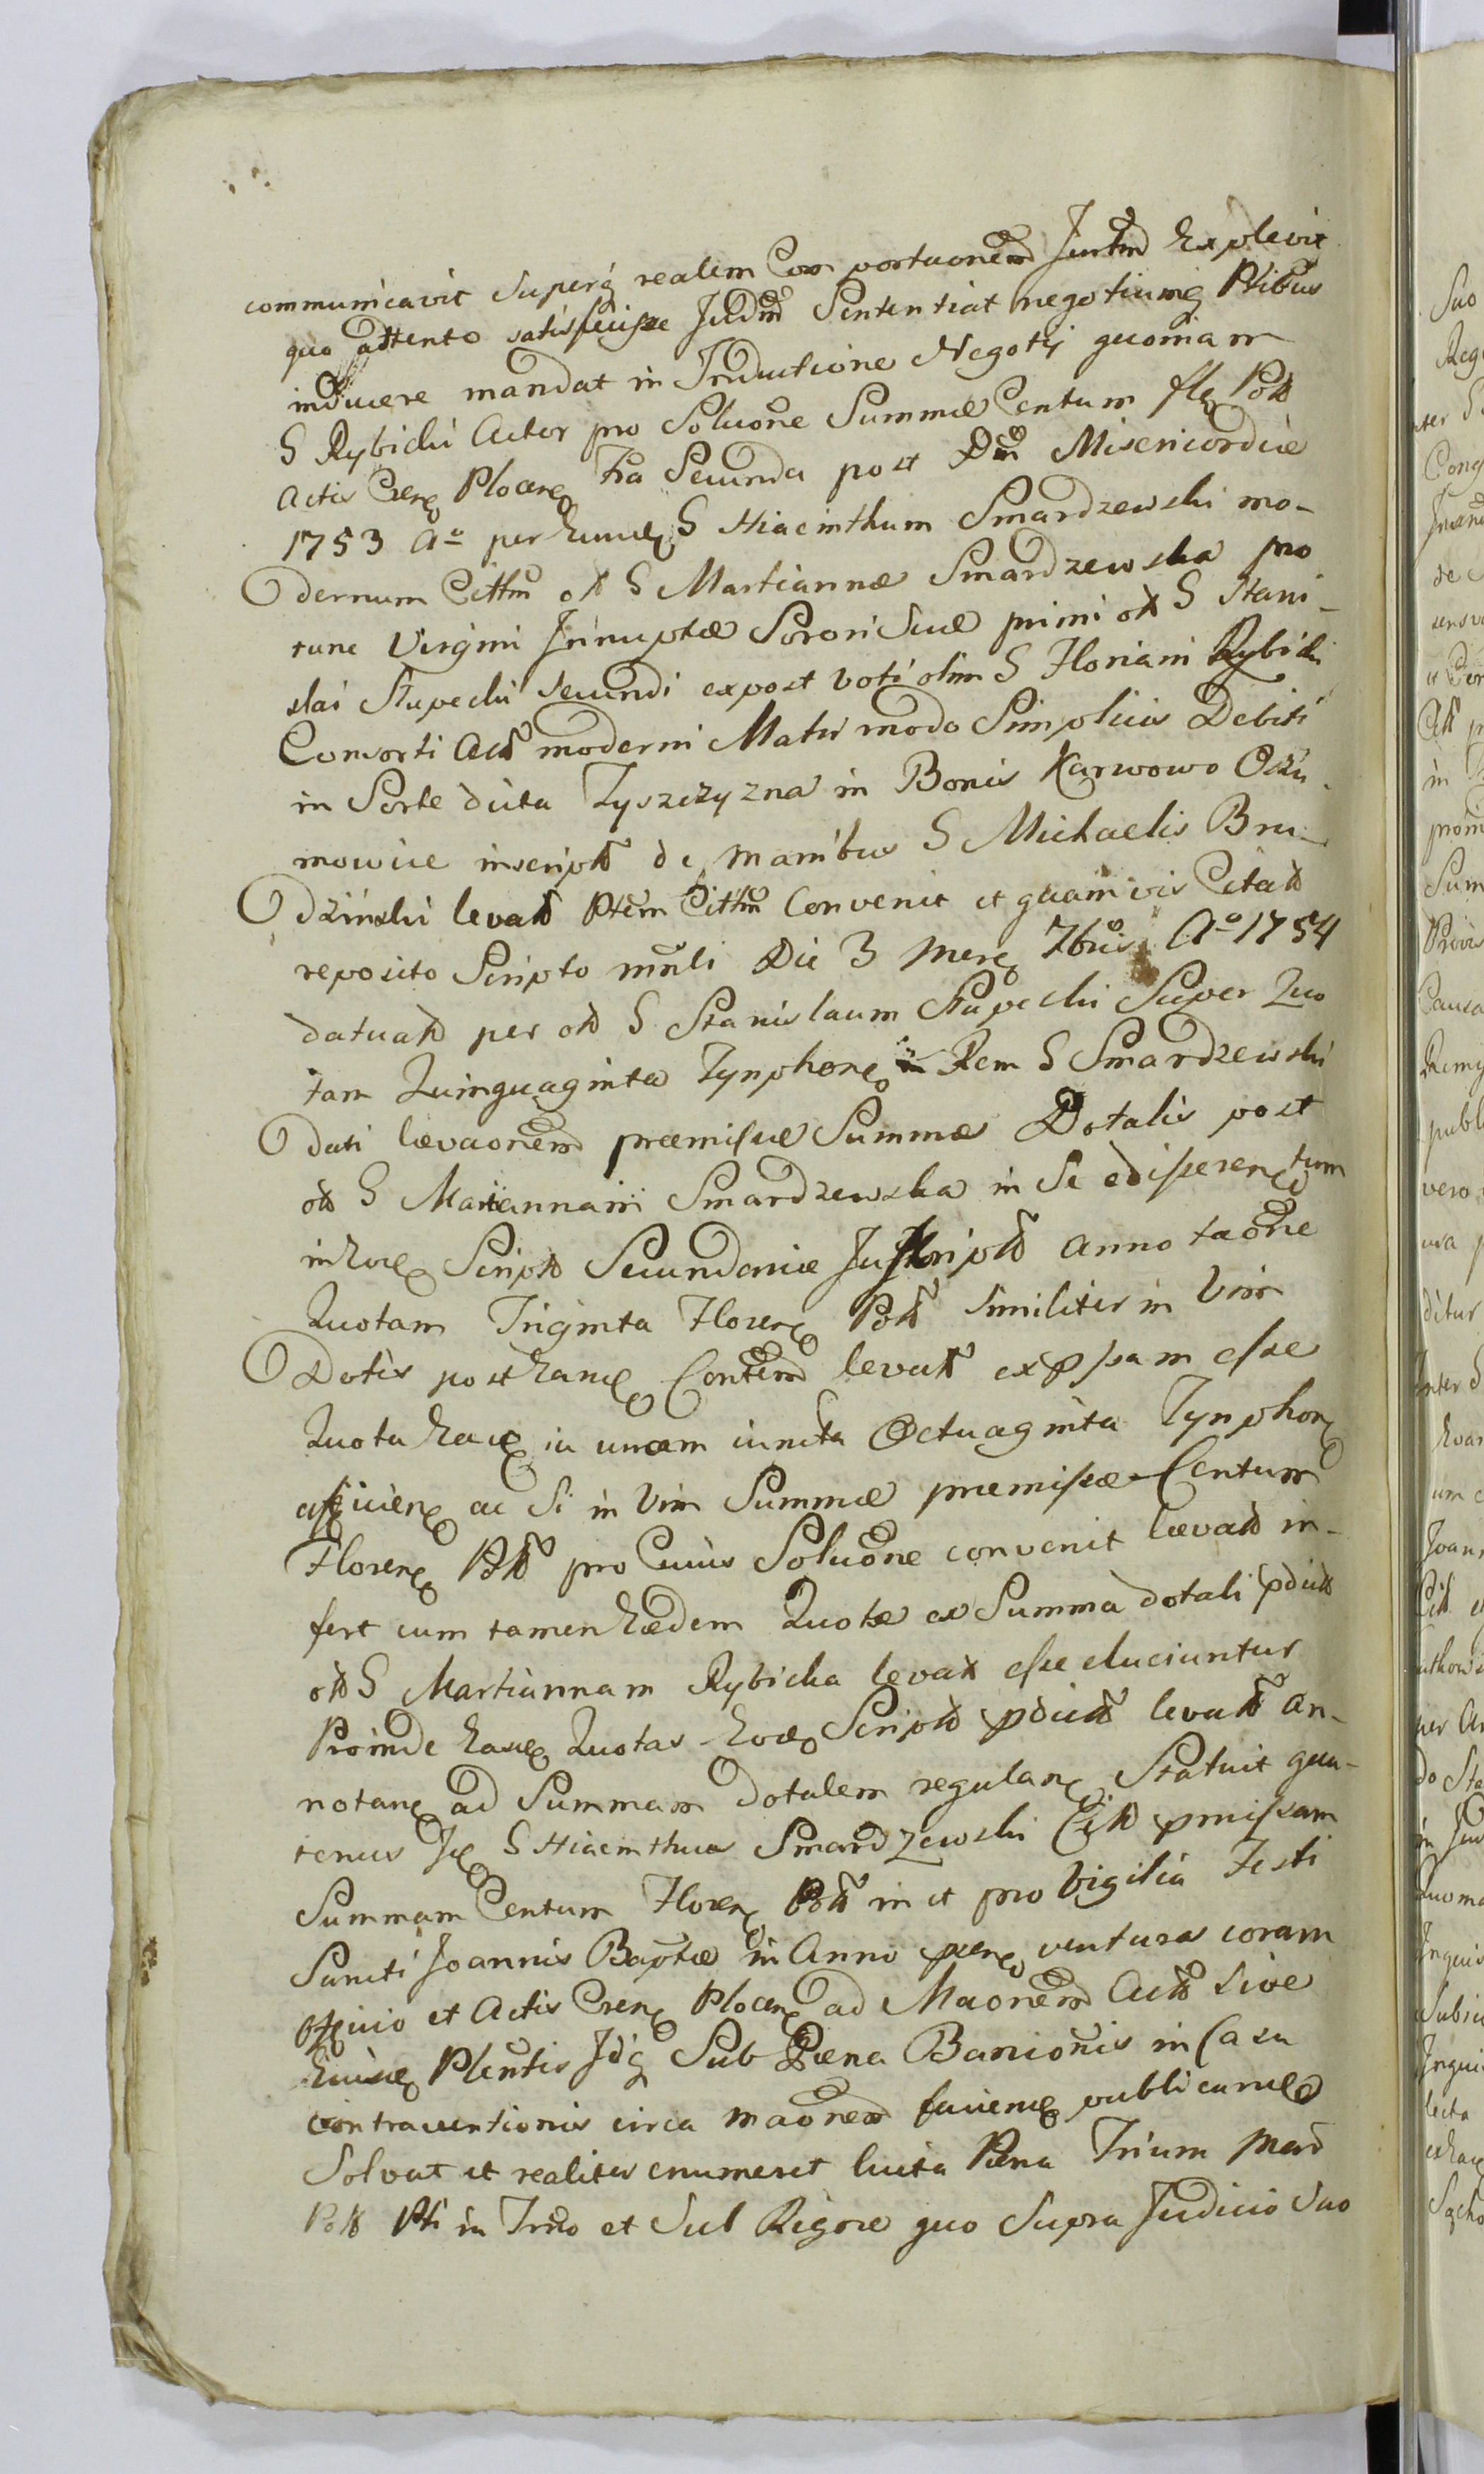 communicavit Superq realem Com portaonem Juntm Explevit
quo attento satisfecisse Judm Sententiat negotiumq Ptibus
inducere mandat in Inductione Negoty quoniam
G Rybicki Actor pro Soluone Summæ Centum flg Polt
Actis Cren Plocen Fra Secunda post Dm Misericordiæ
1753 Ao per hunc G Hiacinthum Smardzewski mo-
dernum Cittm olt G Martiannæ Smardzewska pro
tunc Virgini Innuptæ Sorori Suæ primi olt G Stani-
slai Stupecki Secundi expost voti olim G Floriani Rybicki
Consorti Act moderni Matri modo Simplicis Debiti
in Sorte dicta Tyszczyzna in Bonis Karwowo
mowice inscript de manibus G Michaelis Bru-
dzinski levat Ptem Cittm Convenit et quamvis Citat
reposito Scripto mnli Die 3 Mens 7bris Ao 1754
datuat per olt G Stanislaum Stupecki Super Quo
tam Quinquaginta Tynphone in Rem G Smardzewski
dati levaonem præmissæ Summæ Dotalis post
olt G Mariannam Smardzewska in Se edisseren tum
inhoc Script Secundariæ Inscript annotaone
Quotam Triginta Floren Polt Similiter in Vim
Dotis post hanc Contem levatt exppsam esse
Quota hæc in unam iuncta Octuaginta Tynphon
efficien ac Si in Vim Summæ præmissæ Centum
Floren Plt pro Cuius Soluone convenit levat in-
fert cum tamen hædem Quotæ ex Summa dotali pdict
olt G Martiannam Rybicka levat esse eluciuntur
Proinde hasce Quotas hoce Script pdict levatt an-
notan ad Summam Dotalem regulan Statuit qua-
tenus G Hiacinthus Smardzewski Citt pmissam
Summam Centum Floren Polt in et pro Vigilia Festi
Sancti Joannis Baptæ in Anno præn venturas coram
Officio et Actis Cren Plocen ad Maonem Actt Sive
Plentis Idq Sub Pæna Banionis in Casu
contraventionis circa maonem publicand
Solvat et realiter enumeret luita Pæna Trium Mar
Polt Pti in Trno et Sub Rigore quo Supra Judicio Suo